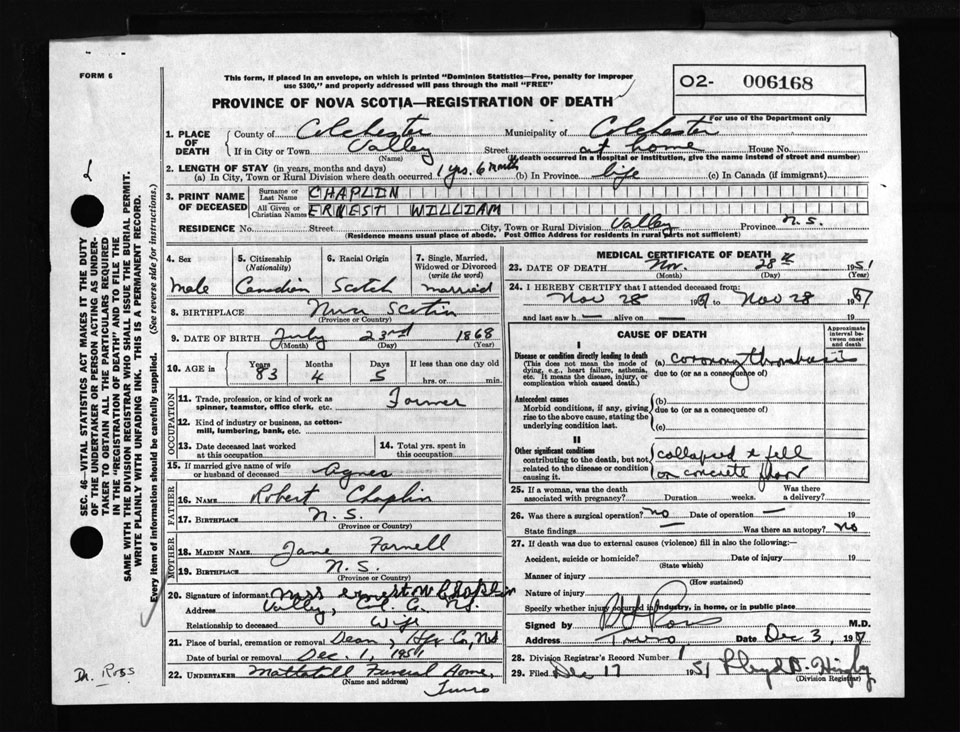 FORM 6
This form, if placed in an envelope, on which is printed "Dominion Statistics—Free, penalty for improper
use $300," and properly addressed will pass through the mail "FREE"
O2- 006168
For use of the Department only
PROVINCE OF NOVA SCOTIA—REGISTRATION OF DEATH
1. PLACE OF DEATH County of Colchester Municipality of Colchester
If in City or Town Valley Street at home House No.
(Name) (If death occurred in a Hospital or Institution, give the name instead of street and number)
2. LENGTH OF STAY (in years, months and days)
(a) In City, Town or Rural Division where death occurred 1 yrs. 6 months (b) In Province life (c) In Canada (if immigrant)
3. PRINT NAME OF DECEASED Surname or Last Name CHAPLIN
All Given or Christian Names ERNEST WILLIAM
RESIDENCE No. Street City, Town or Rural Division Valley Province N.S.
(Residence means usual place of abode. Post Office Address for residents in rural parts not sufficient)
4. Sex Male
5. Citizenship (Nationality) Canadian
6. Racial Origin Scotch
7. Single, Married, Widowed or Divorced (write the word) married
8. BIRTHPLACE Nova Scotia
(Province or Country)
9. DATE OF BIRTH July 23rd 1868
(Month) (Day) (Year)
10. AGE in Years 83 Months 4 Days 5 If less than one day old
hrs. or min.
OCCUPATION
11. Trade, profession, or kind of work as
spinner, teamster, office clerk, etc. Farmer
12. Kind of industry or business, as cotton-
mill, lumbering, bank, etc.
13. Date deceased last worked
at this occupation
14. Total yrs. spent in
this occupation
15. If married give name of wife
or husband of deceased Agnes
FATHER
16. NAME Robert Chaplin
17. BIRTHPLACE N.S.
(Province or Country)
MOTHER
18. MAIDEN NAME Jane Farnell
19. BIRTHPLACE N.S.
(Province or Country)
20. Signature of informant Mrs Ernest W Chaplin
Address Valley, Col. Co. N.S.
Relationship to deceased Wife
21. Place of burial, cremation or removal Dean, Hfx Co, N.S.
Date of burial or removal Dec. 1, 1951
22. UNDERTAKER Mattatall Funeral Home,
(Name and address) Truro
MEDICAL CERTIFICATE OF DEATH
23. DATE OF DEATH Nov. 28th 1951
(Month) (Day) (Year)
24. I HEREBY CERTIFY that I attended deceased from:
Nov 28 1951 to Nov 28 1951
and last saw h— alive on — 19
CAUSE OF DEATH
Approximate interval between onset and death
I
Disease or condition directly leading to death
(This does not mean the mode of
dying, e.g., heart failure, asthenia,
etc. It means the disease, injury, or
complication which caused death.)
(a) coronary thrombosis
due to (or as a consequence of)
Antecedent causes
Morbid conditions, if any, giving
rise to the above cause, stating the
underlying condition last.
(b)
due to (or as a consequence of)
(c)
II
Other significant conditions
contributing to the death, but not
related to the disease or condition
causing it.
collapsed & fell
on concrete floor
25. If a woman, was the death
associated with pregnancy? Duration weeks. Was there
a delivery?
26. Was there a surgical operation? No Date of operation — 19
State findings — Was there an autopsy? No
27. If death was due to external causes (violence) fill in also the following:—
Accident, suicide or homicide? Date of injury 19
(State which)
Manner of injury
(How sustained)
Nature of injury
Specify whether injury occurred in industry, in home, or in public place
Signed by Ross M.D.
Address Truro Date Dec 3, 1951
28. Division Registrar's Record Number 1
29. Filed Dec 17 1951 Lloyd B. Higby
(Division Registrar)
SEC. 46—VITAL STATISTICS ACT MAKES IT THE DUTY
OF THE UNDERTAKER OR PERSON ACTING AS UNDER-
TAKER TO OBTAIN ALL THE PARTICULARS REQUIRED
IN THE "REGISTRATION OF DEATH" AND TO FILE THE
SAME WITH THE DIVISION REGISTRAR WHO SHALL ISSUE THE BURIAL PERMIT.
WRITE PLAINLY WITH UNFADING INK. THIS IS A PERMANENT RECORD.
Every item of information should be carefully supplied. (See reverse side for instructions.)
Dr. Ross